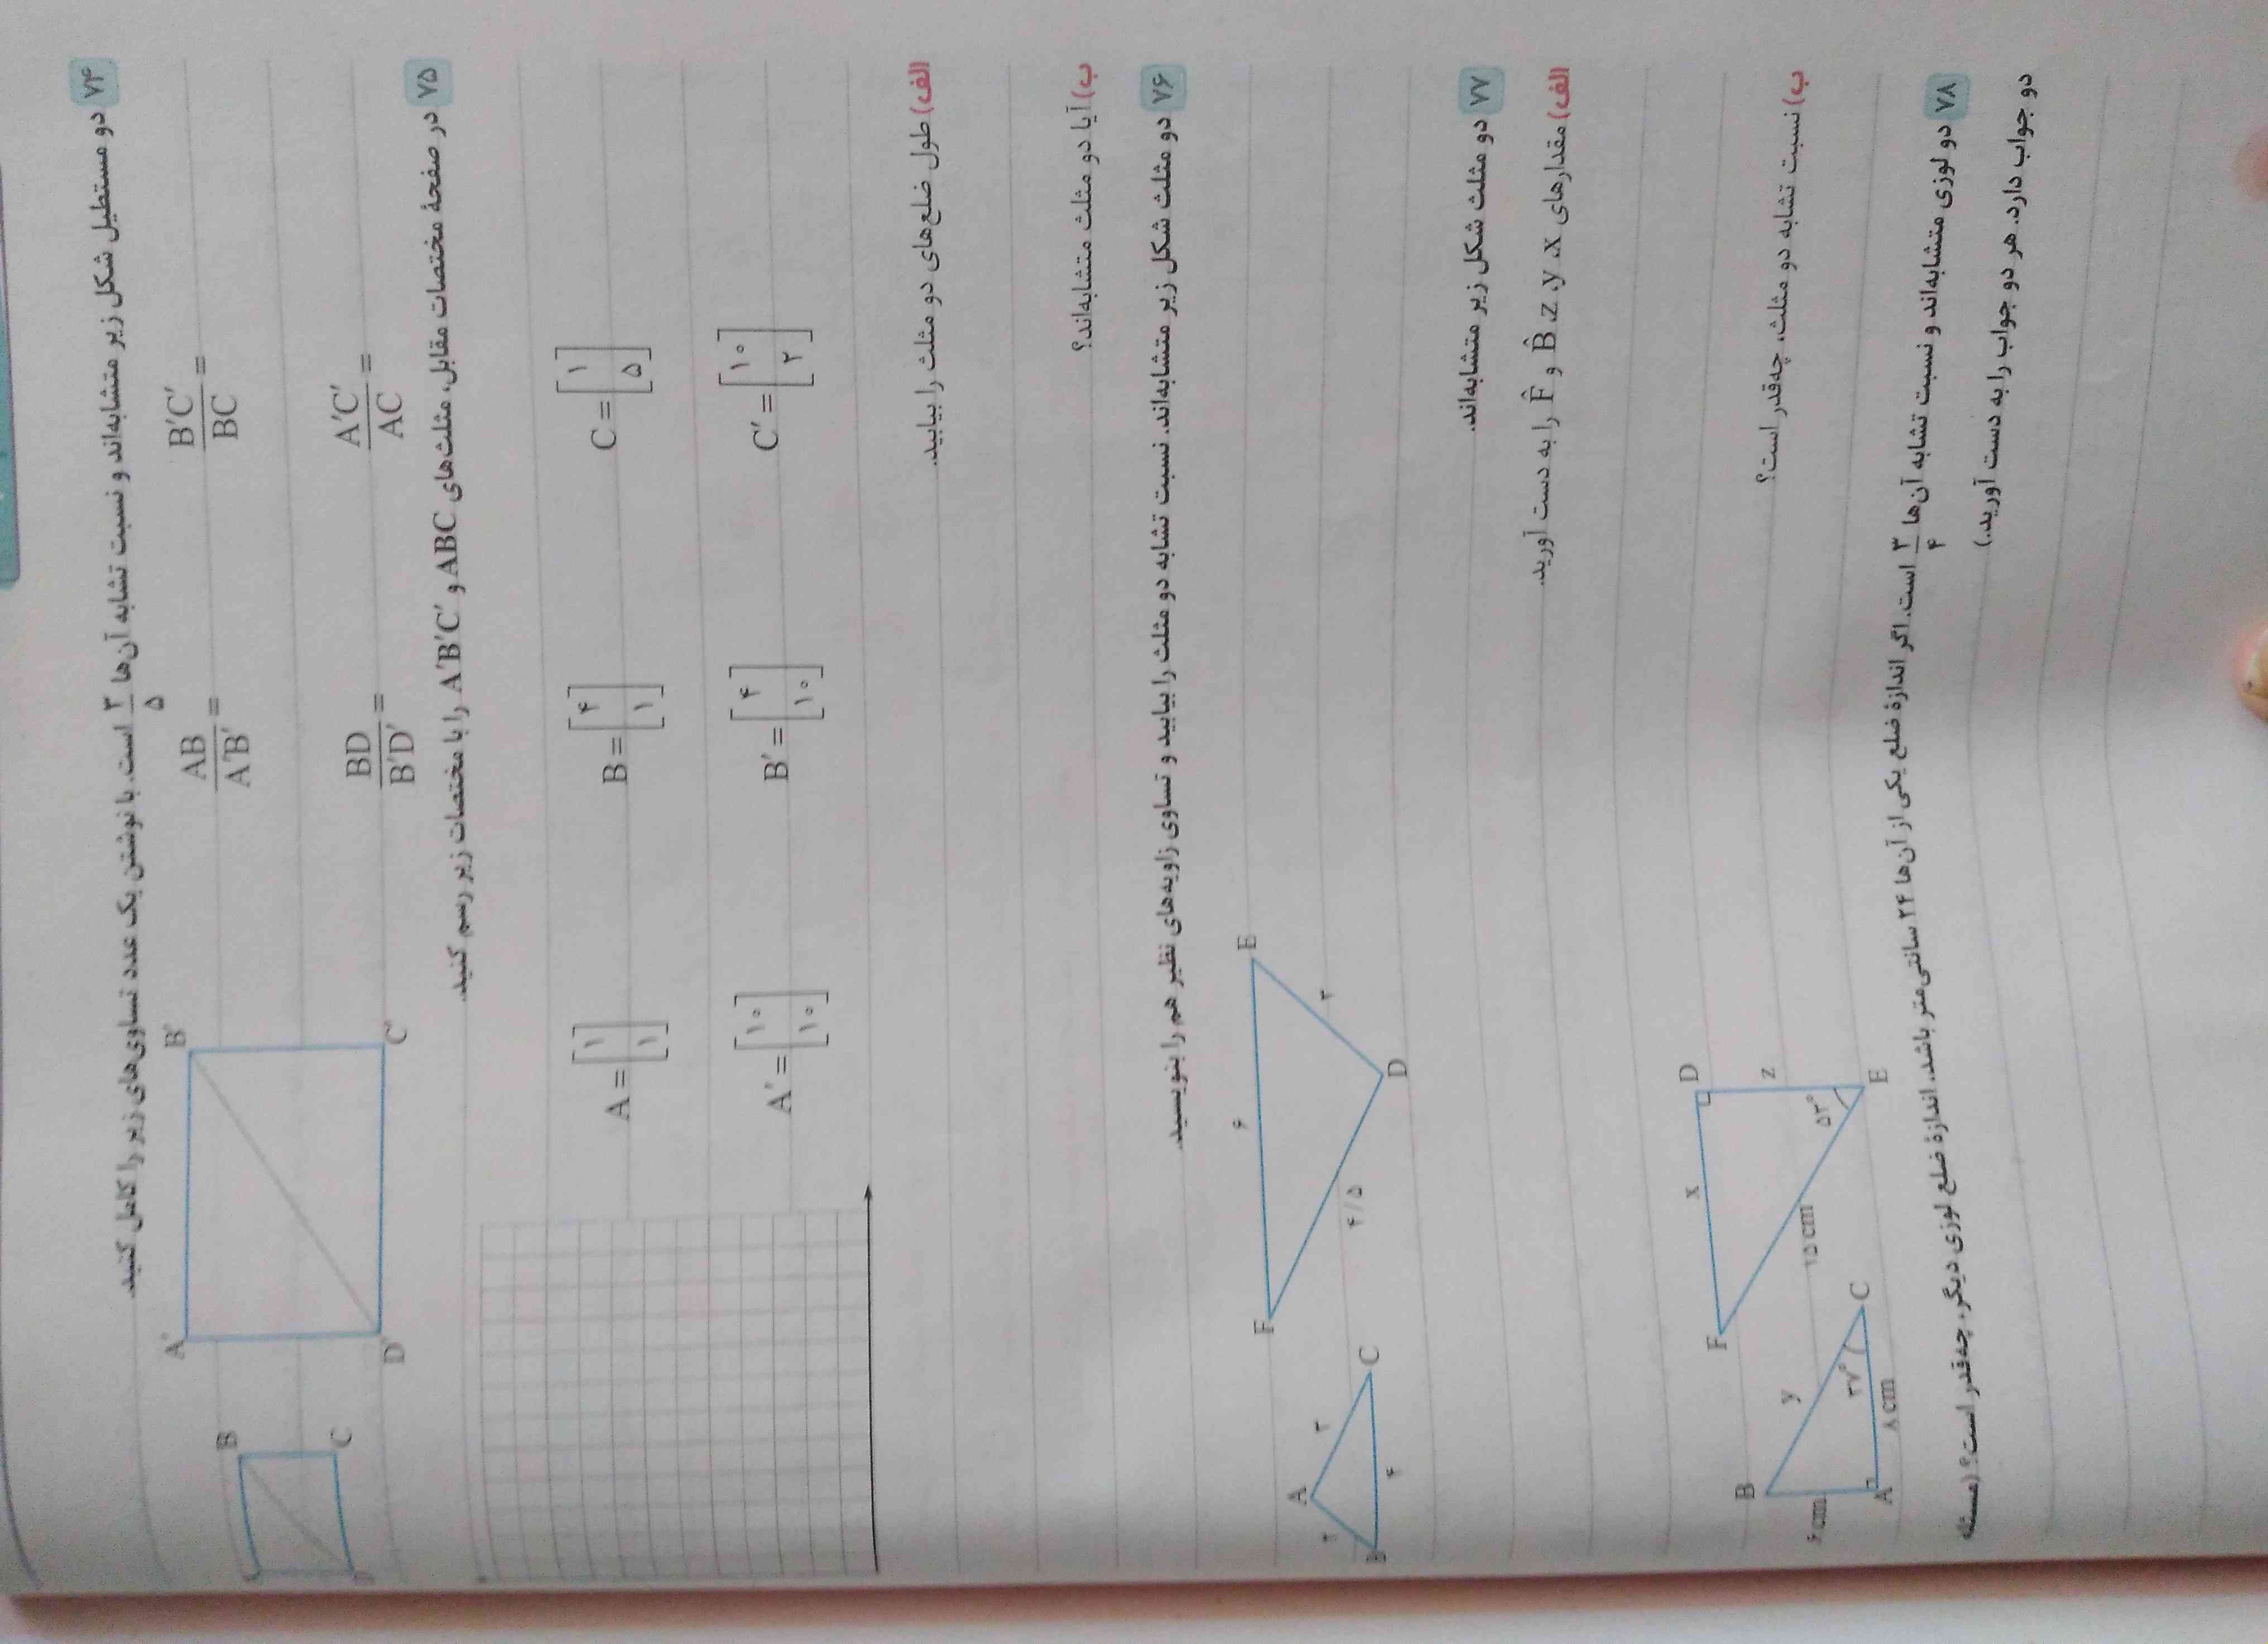 ۷۴ دو مستطیل شکل زیر متشابه‌اند و نسبت تشابه آن‌ها ۳/۵ است. با نوشتن یک عدد تساوی‌های زیر را کامل کنید.
AB/A'B' =
B'C'/BC =
BD/B'D' =
A'C'/AC =
B
C
A'
B'
C'
D'
۷۵ در صفحهٔ مختصات مقابل، مثلث‌های ABC و A'B'C' را با مختصات زیر رسم کنید.
A = [۱ ۱]
B = [۴ ۱]
C = [۱ ۵]
A' = [۱۰ ۱۰]
B' = [۴ ۱۰]
C' = [۱۰ ۲]
الف) طول ضلع‌های دو مثلث را بیابید.
ب) آیا دو مثلث متشابه‌اند؟
۷۶ دو مثلث شکل زیر متشابه‌اند. نسبت تشابه دو مثلث را بیابید و تساوی زاویه‌های نظیر هم را بنویسید.
A
B
C
۲
۳
۴
F
E
D
۶
۳
۴/۵
۷۷ دو مثلث شکل زیر متشابه‌اند.
الف) مقدارهای x، y، z، B̂ و F̂ را به دست آورید.
ب) نسبت تشابه دو مثلث، چه‌قدر است؟
B
A
C
y
۶ cm
۸ cm
۳۷°
F
D
E
x
z
۱۵ cm
۵۳°
۷۸ دو لوزی متشابه‌اند و نسبت تشابه آن‌ها ۳/۴ است. اگر اندازهٔ ضلع یکی از آن‌ها ۲۴ سانتی‌متر باشد، اندازهٔ ضلع لوزی دیگر، چه‌قدر است؟ (مسئله
دو جواب دارد. هر دو جواب را به دست آورید.)